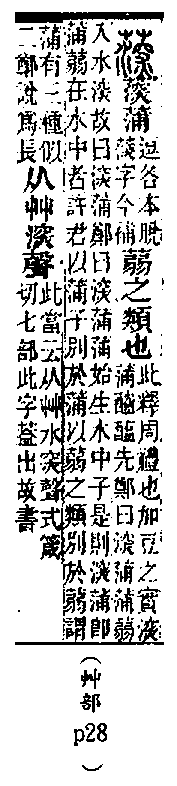 㴱蒲
逗各本脫
㴱字今補
蒻之類也
此釋周禮也加豆之實㴱
蒲醓醢先鄭曰㴱蒲蒲蒻
入水㴱故曰㴱蒲鄭曰㴱蒲蒲始生水中子是則㴱蒲卽
蒲蒻在水中者許君以蒲子別於蒲以蒻之類別於蒻謂
蒲有三種似
二鄭說爲長
从艸㴱聲
此當云从艸水罙聲式箴
切七部此字葢出故書
(艸部 p28)